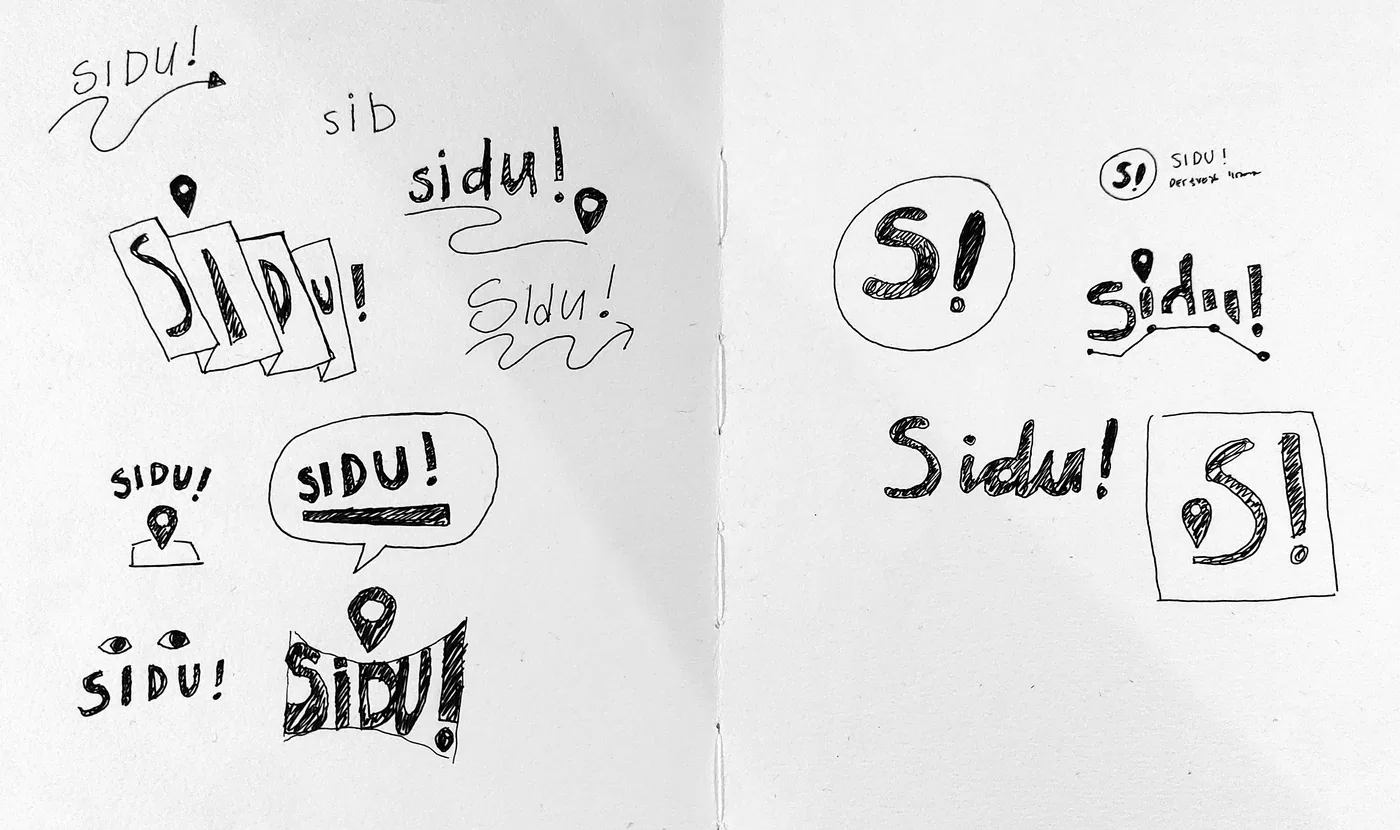 SIDU!
sib
sidu!
SIDU!
Sidu!
SIDU!
SIDU!
SIDU!
SiDU!
S!
SIDU!
S!
Sidu!
Sidu!
S!